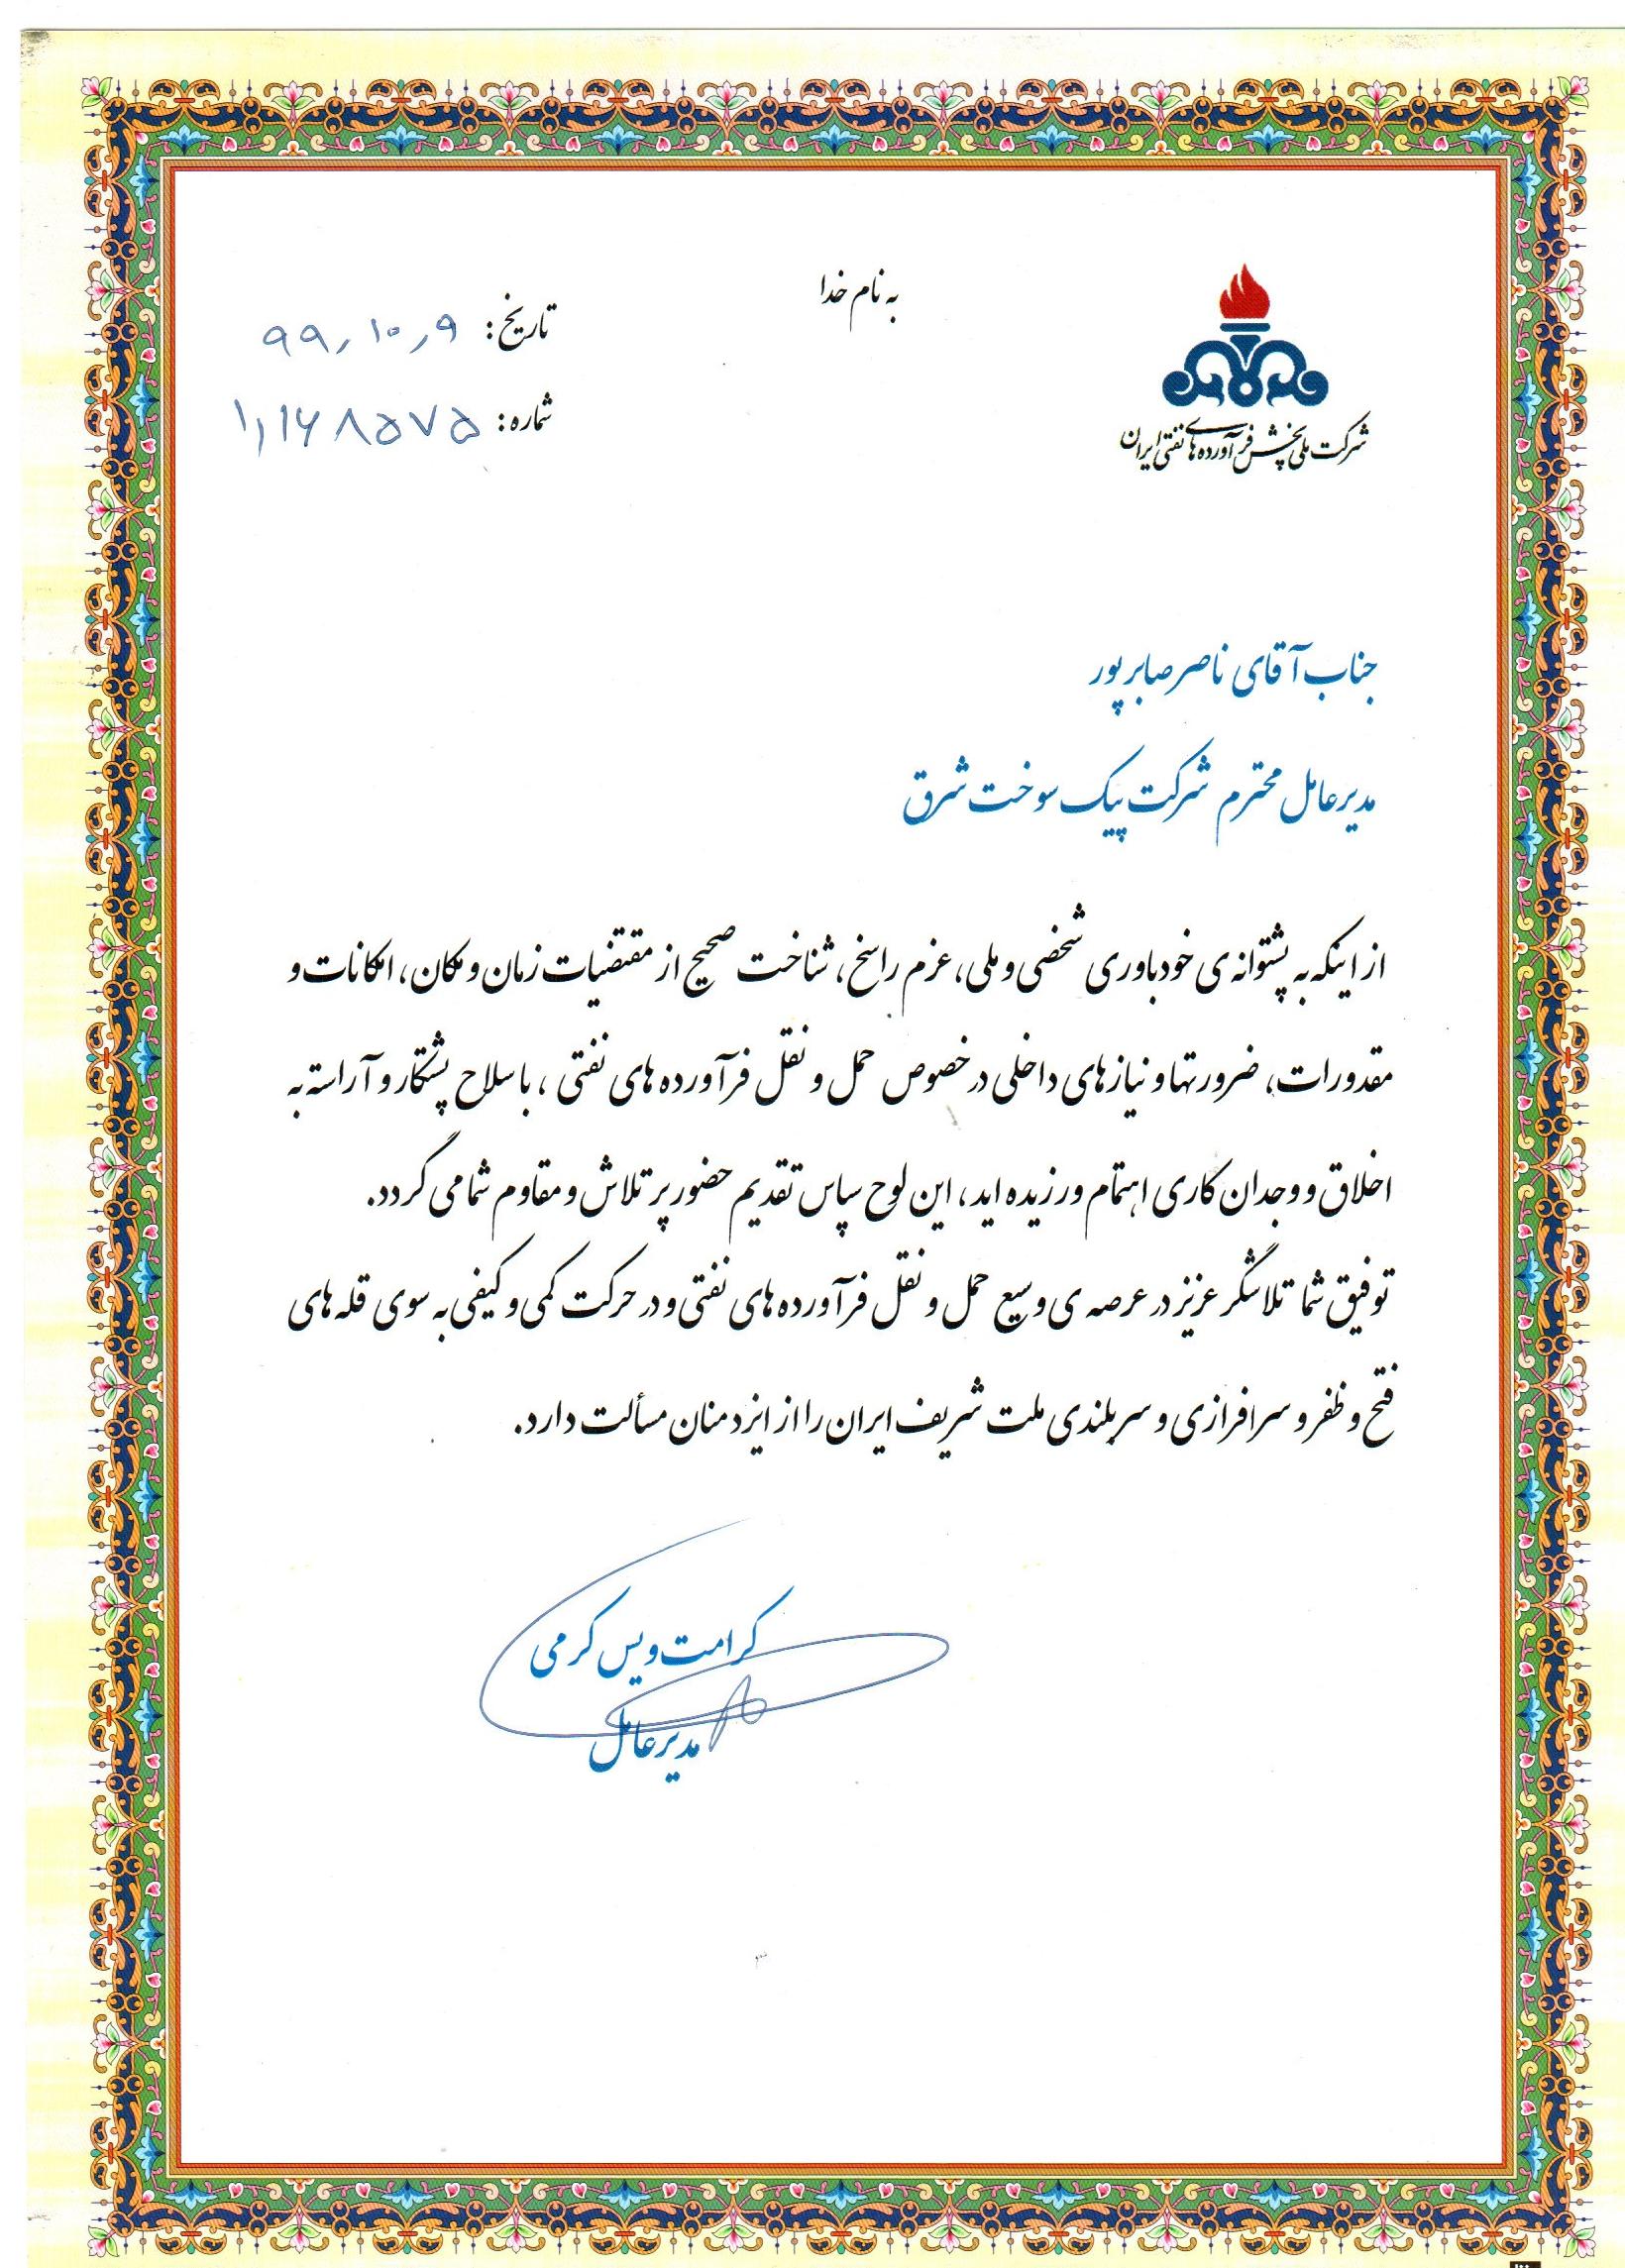 به نام خدا
شرکت ملی پخش فرآورده های نفتی ایران
تاریخ: ۹۹,۱۰,۹
شماره: ۱,۱۶۸۵۷۵
جناب آقای ناصر صابر پور
مدیرعامل محترم شرکت پیک سوخت شرق
از اینکه به پشتوانه ی خودباوری شخصی و ملی، عزم راسخ، شناخت صحیح از مقتضیات زمان و مکان، امکانات و
مقدورات، ضرورتها و نیازهای داخلی در خصوص حمل و نقل فرآورده های نفتی ، با سلاح پشتکار و آراسته به
اخلاق و وجدان کاری اهتمام ورزیده اید، این لوح سپاس تقدیم حضور پر تلاش و مقاوم شما می گردد.
توفیق شما تلاشگر عزیز در عرصه ی وسیع حمل و نقل فرآورده های نفتی و در حرکت کمی و کیفی به سوی قله های
فتح و ظفر و سرافرازی و سربلندی ملت شریف ایران را از ایزد منان مسألت دارد.
کرامت ویس کرمی
مدیرعامل